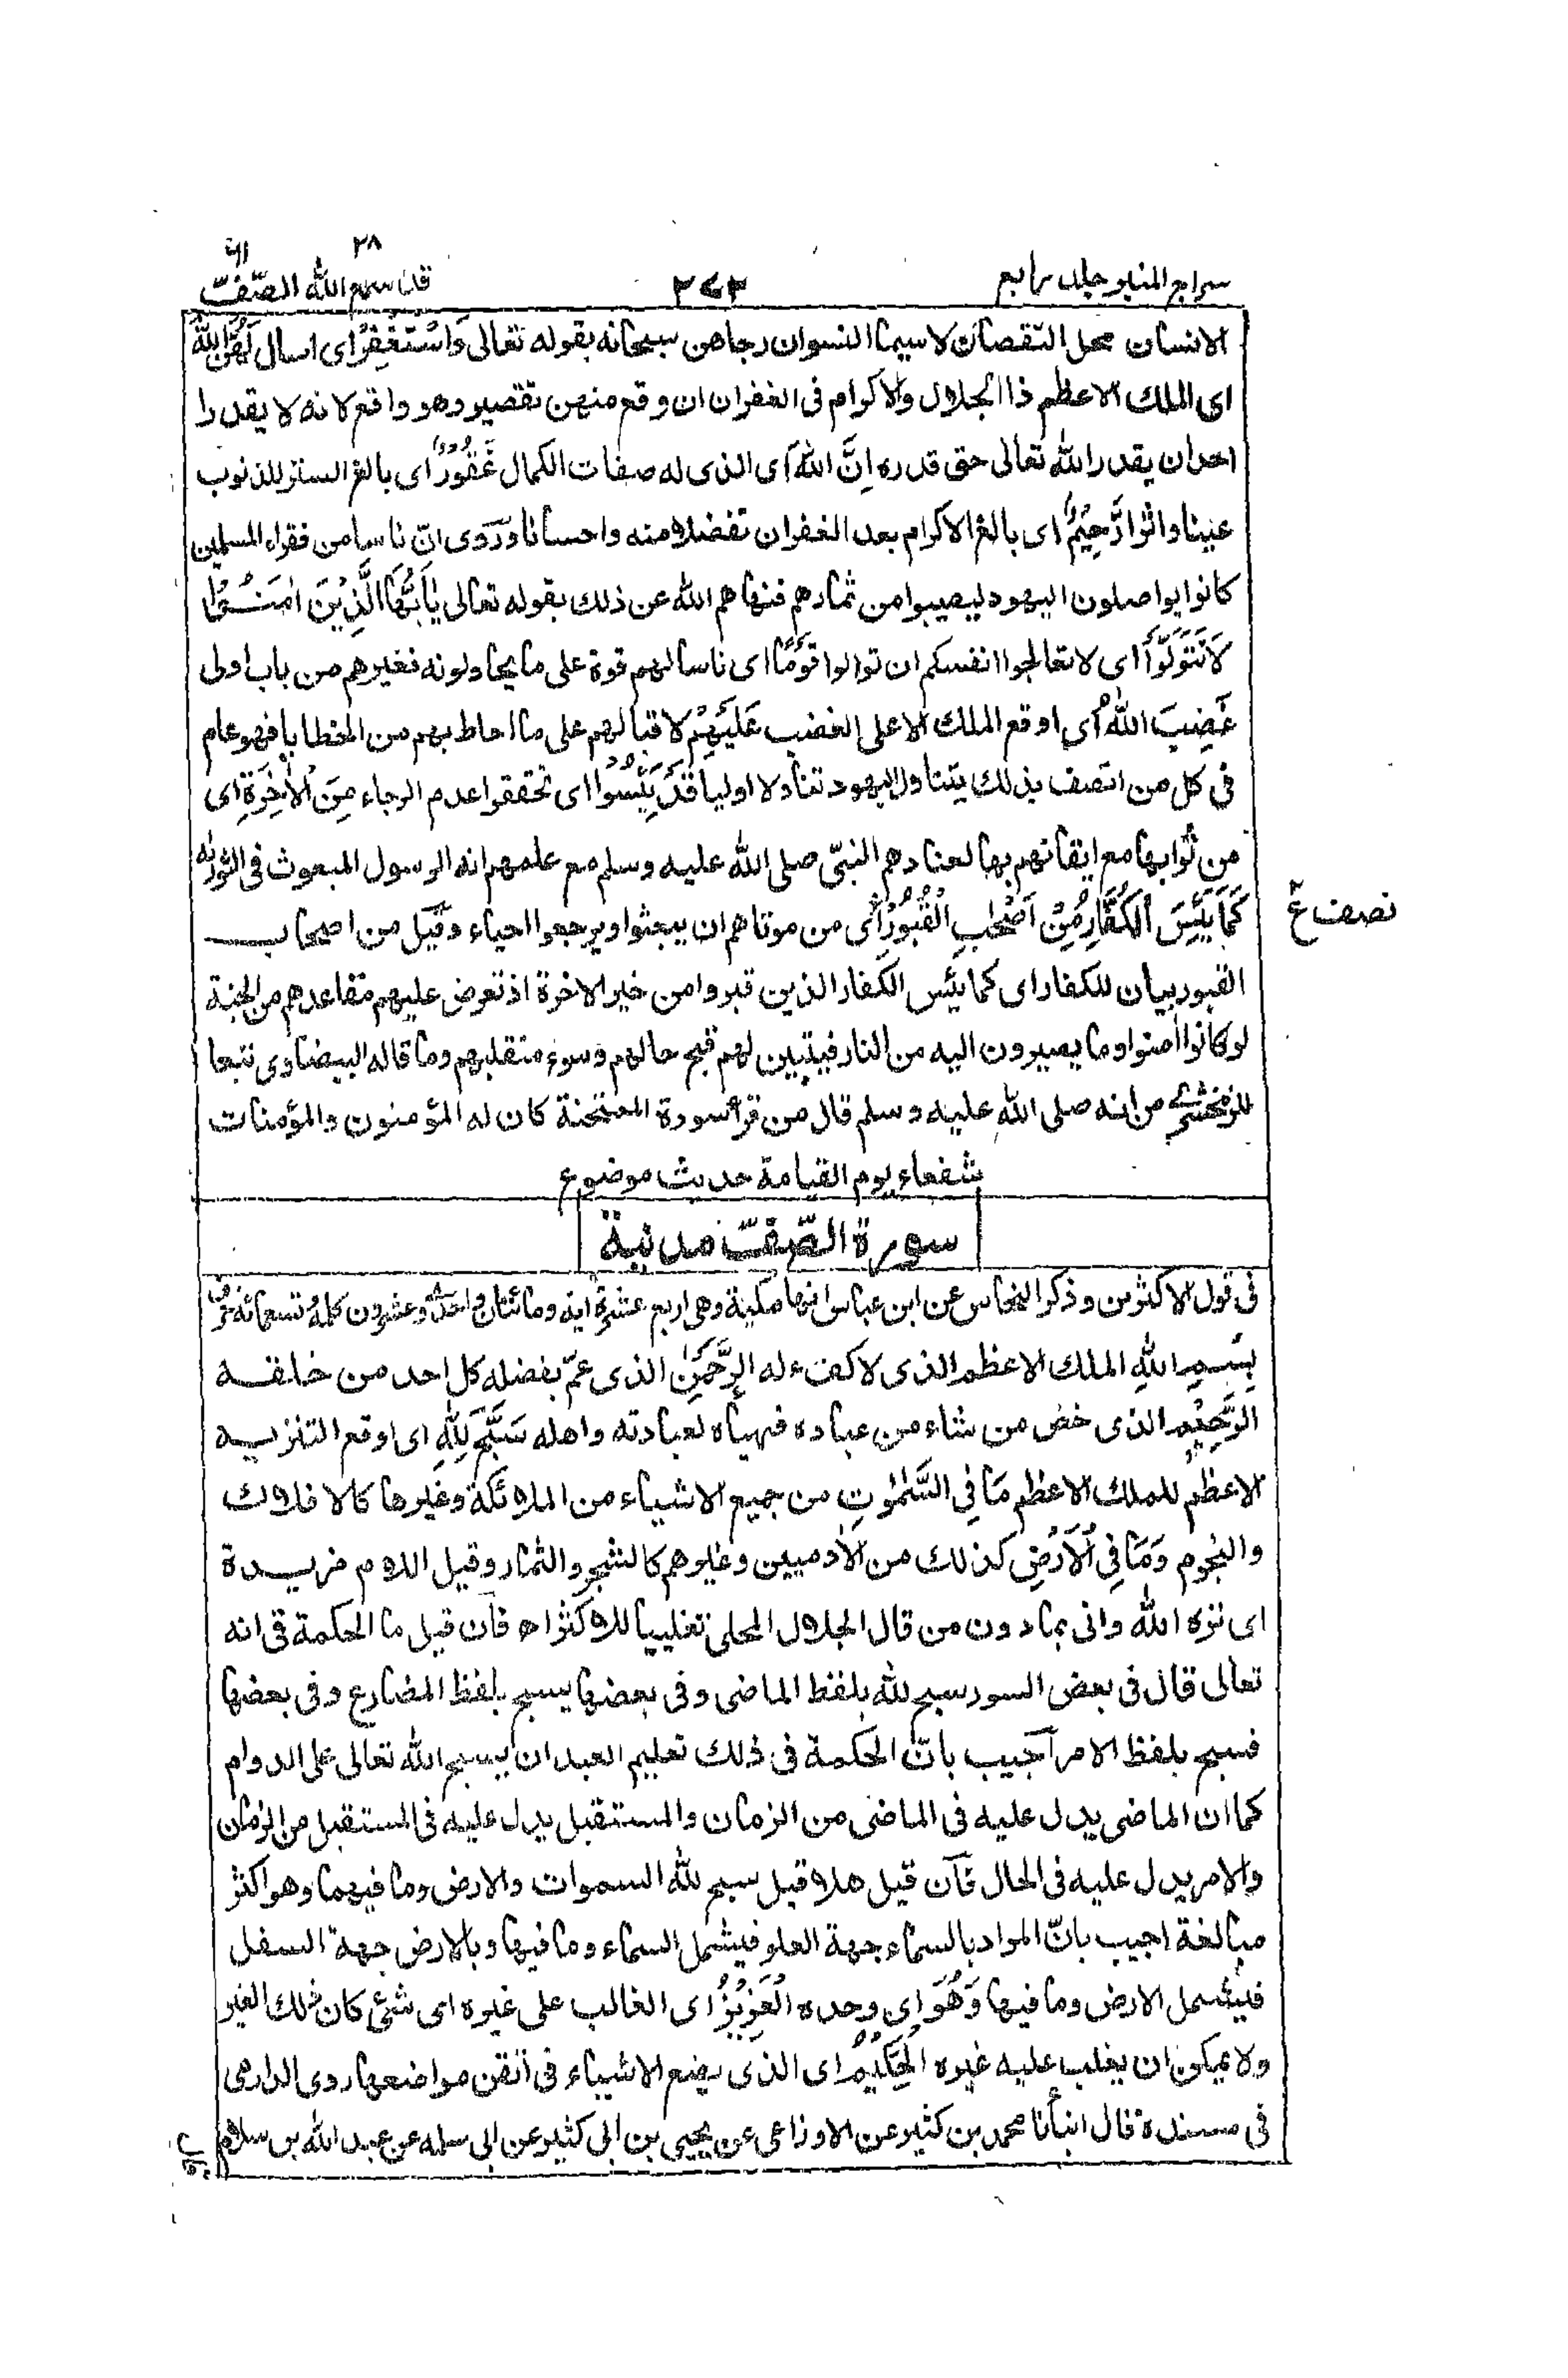 سراج المنير جلد رابع ٢٧٣ قد سمع الله ٢٨ الصّفّ ٦١
الانسان محل النقصان لاسيما النسوان رجاهن سبحانه بقوله تعالى وَاسْتَغْفِرْ اى اسال لَهُنَّ اللهَ
اى الملك الاعظم ذا الجلال والاكرام فى الغفران ان وقع منهن تقصير وهو واقع لانه لا يقدر
احد ان يقدر الله تعالى حق قدره اِنَّ اللهَ اى الذى له صفات الكمال غَفُوْرٌ اى بالغ الستر للذنوب
عينا واثرا رَّحِيْمٌ اى بالغ الاكرام بعد الغفران تفضلا منه واحسانا ورَوى انّ ناسا من فقراء المسلمين
كانوا يواصلون اليهود ليصيبوا من ثمارهم فنهاهم الله عن ذلك بقوله تعالى يٰاَيُّهَا الَّذِيْنَ اٰمَنُوْا
لَا تَتَوَلَّوْا اى لا تعالجوا انفسكم ان توالوا قَوْمًا اى ناسا لهم قوة على ما يحاولونه فغيرهم من باب اولى
غَضِبَ اللهُ اى اوقع الملك الاعلى الغضب عَلَيْهِمْ لاقبالهم على ما احاط بهم من الخطايا فهو عام
فى كل من اتصف بذلك يتناول اليهود تناولا اوليا قَدْ يَئِسُوْا اى تحققوا عدم الرجاء مِنَ الْاٰخِرَةِ اى
من ثوابها مع ايقانهم بها لعنادهم النبىّ صلى الله عليه وسلم مع علمهم انه الرسول المبعوث فى التورٰىة
كَمَا يَئِسَ الْكُفَّارُ مِنْ اَصْحٰبِ الْقُبُوْرِ اى من موتاهم ان يبعثوا او يرجعوا احياء وقيل من اصحاب
نصف ع
القبور بيان للكفار اى كما يئس الكفار الذين قبروا من خير الاخرة اذ تعرض عليهم مقاعدهم من الجنة
لو كانوا امنوا وما يصيرون اليه من النار فيتبين لهم قبح حالهم وسوء منقلبهم وما قاله البيضاوى تبعا
للزمخشرى من انه صلى الله عليه وسلم قال من قرأ سورة الممتحنة كان له المؤمنون والمؤمنات
شفعاء يوم القيامة حديث موضوع
سورة الصّفّ مدنية
فى قول الاكثرين وذكر النحاس عن ابن عباس انها مكية وهى اربع عشرة اية ومائتان واحدى وعشرون كلمة وتسعمائة حرف
بِسْمِ اللهِ الملك الاعظم الذى لا كفء له الرَّحْمٰنِ الذى عمّ بفضله كل احد من خلقه
الرَّحِيْمِ الذى خص من شاء من عباده فهياه لعبادته واهله سَبَّحَ لِلهِ اى اوقع التنزيه
الاعظم للملك الاعظم مَا فِى السَّمٰوٰتِ من جميع الاشياء من الملائكة وغيرها كالافلاك
والنجوم وَمَا فِى الْاَرْضِ كذلك من الادميين وغيرهم كالشجر والثمار وقيل اللام مزيدة
اى نزه الله واتى بما دون من قال الجلال المحلى تغليبا للاكثر اه فان قيل ما الحكمة فى انه
تعالى قال فى بعض السور سبح لله بلفظ الماضى وفى بعضها يسبح بلفظ المضارع وفى بعضها
فسبح بلفظ الامر اُجيب بانّ الحكمة فى ذلك تعليم العبد ان يسبح الله تعالى على الدوام
كما ان الماضى يدل عليه فى الماضى من الزمان والمستقبل يدل عليه فى المستقبل من الزمان
والامر يدل عليه فى الحال فان قيل هلا قيل سبح لله السموات والارض وما فيهما وهو اكثر
مبالغة اجيب بانّ المراد بالسماء جهة العلو فيشمل السماء وما فيها وبالارض جهة السفل
فيشمل الارض وما فيها وَهُوَ اى وحده الْعَزِيْزُ اى الغالب على غيره اى شئ كان ذلك الغير
ولا يمكن ان يغلب عليه غيره الْحَكِيْمُ اى الذى يضع الاشياء فى اتقن مواضعها روى الدارمى
فى مسنده قال انبأنا محمد بن كثير عن الاوزاعى عن يحيى بن ابى كثير عن ابى سلمه عن عبد الله بن سلام